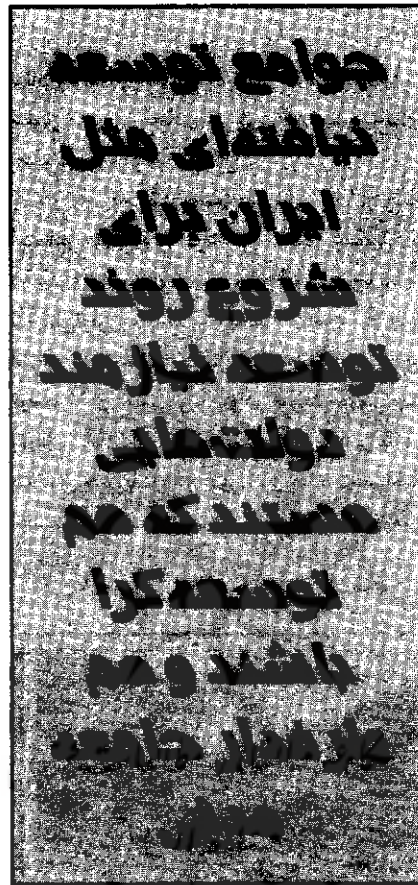 جوامع توسعه
نیافته‌ای مثل
ایران برای
شروع روند
توسعه نیازمند
دولت‌هایی
هستند که هم
توسعه‌گرا
باشند و هم
طرفدار جامعه
مدنی